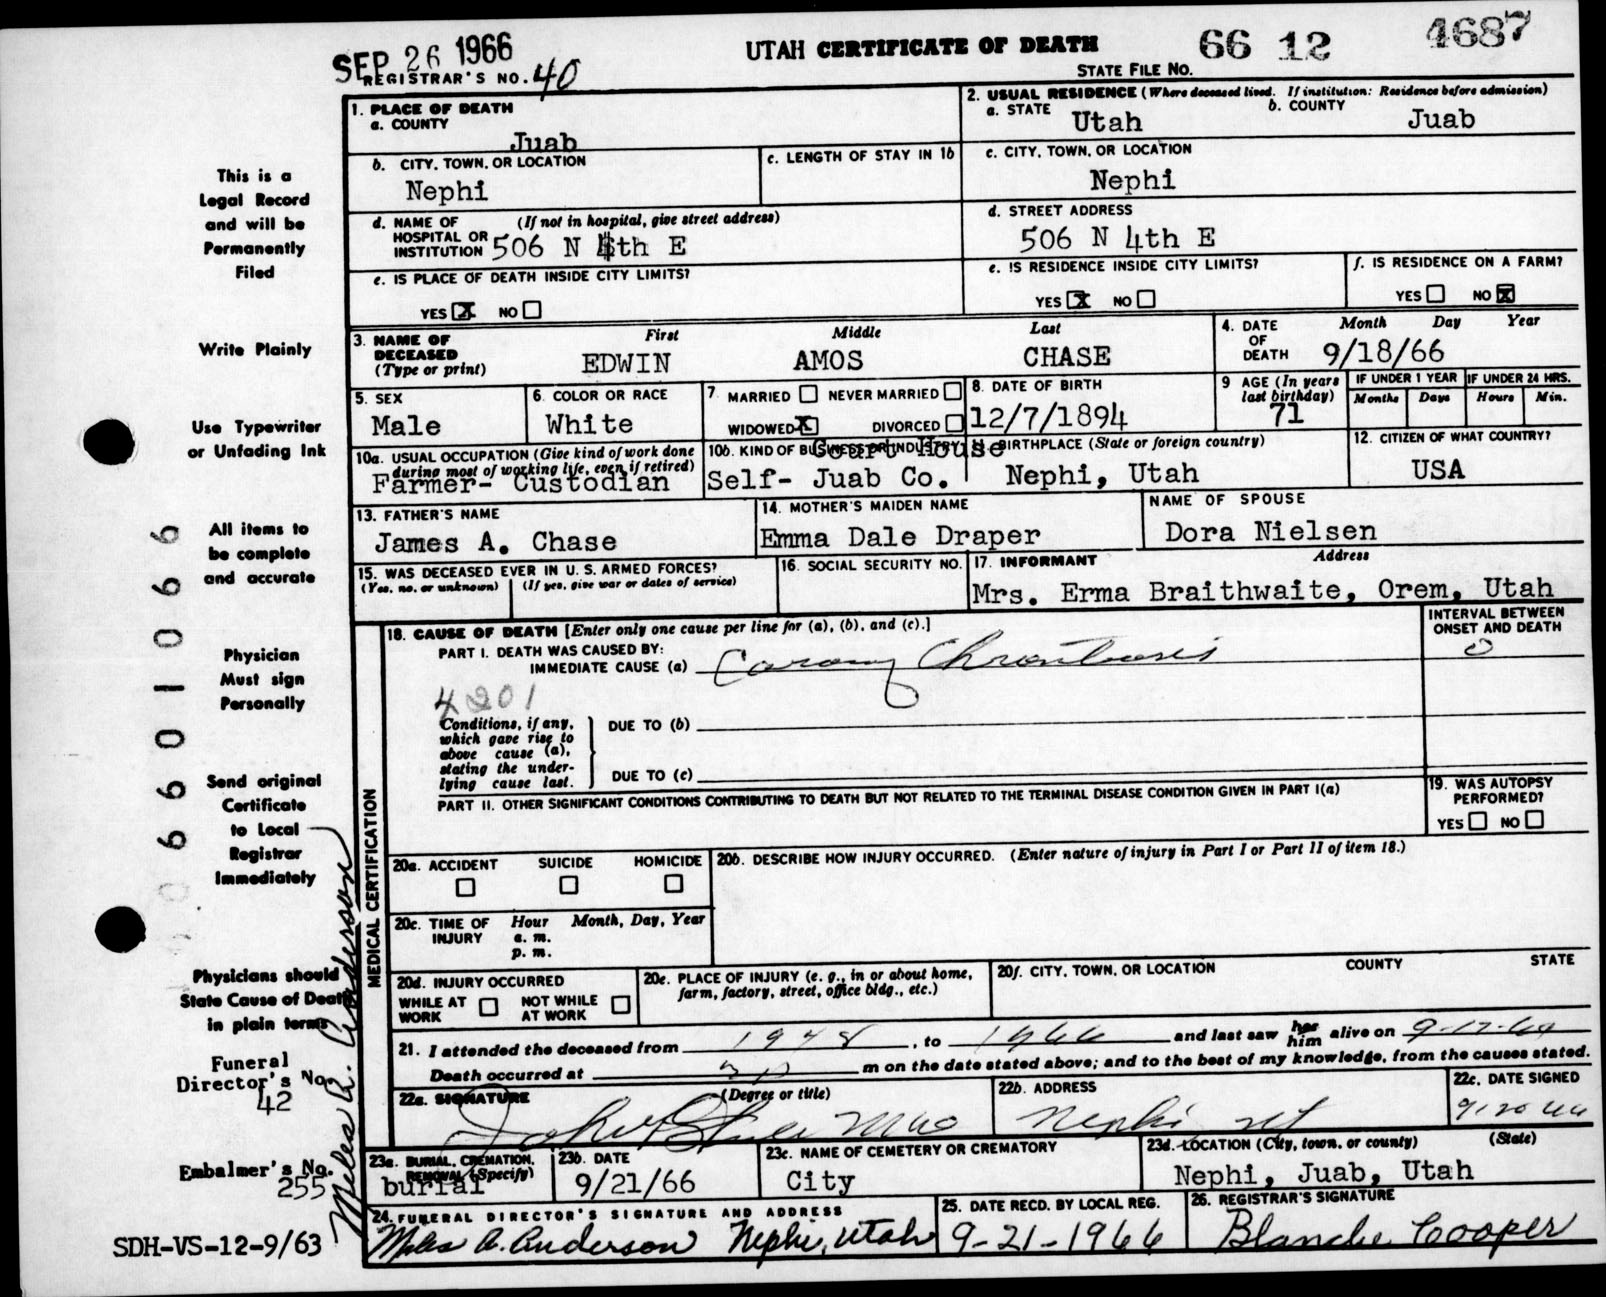 SEP 26 1966
UTAH CERTIFICATE OF DEATH
66 12 4687
REGISTRAR'S NO. 40
STATE FILE NO.
1. PLACE OF DEATH
a. COUNTY
Juab
2. USUAL RESIDENCE (Where deceased lived. If institution: Residence before admission)
a. STATE
Utah
b. COUNTY
Juab
b. CITY, TOWN, OR LOCATION
Nephi
c. LENGTH OF STAY IN 1b
c. CITY, TOWN, OR LOCATION
Nephi
d. NAME OF HOSPITAL OR INSTITUTION (If not in hospital, give street address)
506 N 4th E
d. STREET ADDRESS
506 N 4th E
e. IS PLACE OF DEATH INSIDE CITY LIMITS?
YES X NO
e. IS RESIDENCE INSIDE CITY LIMITS?
YES X NO
f. IS RESIDENCE ON A FARM?
YES NO X
3. NAME OF DECEASED (Type or print)
First Middle Last
EDWIN AMOS CHASE
4. DATE OF DEATH
Month Day Year
9/18/66
5. SEX
Male
6. COLOR OR RACE
White
7. MARRIED NEVER MARRIED
WIDOWED X DIVORCED
8. DATE OF BIRTH
12/7/1894
9 AGE (In years last birthday)
71
IF UNDER 1 YEAR
Months Days
IF UNDER 24 HRS.
Hours Min.
10a. USUAL OCCUPATION (Give kind of work done during most of working life, even if retired)
Farmer- Custodian
10b. KIND OF BUSINESS OR INDUSTRY
Court House
Self- Juab Co.
11. BIRTHPLACE (State or foreign country)
Nephi, Utah
12. CITIZEN OF WHAT COUNTRY?
USA
13. FATHER'S NAME
James A. Chase
14. MOTHER'S MAIDEN NAME
Emma Dale Draper
NAME OF SPOUSE
Dora Nielsen
15. WAS DECEASED EVER IN U. S. ARMED FORCES?
(Yes, no, or unknown) (If yes, give war or dates of service)
16. SOCIAL SECURITY NO.
17. INFORMANT Address
Mrs. Erma Braithwaite, Orem, Utah
18. CAUSE OF DEATH [Enter only one cause per line for (a), (b), and (c).]
INTERVAL BETWEEN ONSET AND DEATH
PART I. DEATH WAS CAUSED BY:
IMMEDIATE CAUSE (a)
4201
Conditions, if any, which gave rise to above cause (a), stating the underlying cause last.
DUE TO (b)
DUE TO (c)
PART II. OTHER SIGNIFICANT CONDITIONS CONTRIBUTING TO DEATH BUT NOT RELATED TO THE TERMINAL DISEASE CONDITION GIVEN IN PART I(a)
19. WAS AUTOPSY PERFORMED?
YES NO
MEDICAL CERTIFICATION
20a. ACCIDENT SUICIDE HOMICIDE
20b. DESCRIBE HOW INJURY OCCURRED. (Enter nature of injury in Part I or Part II of item 18.)
20c. TIME OF INJURY
Hour Month, Day, Year
a. m.
p. m.
20d. INJURY OCCURRED
WHILE AT WORK NOT WHILE AT WORK
20e. PLACE OF INJURY (e. g., in or about home, farm, factory, street, office bldg., etc.)
20f. CITY, TOWN, OR LOCATION COUNTY STATE
21. I attended the deceased from 1948, to 1966 and last saw her him alive on
Death occurred at m on the date stated above; and to the best of my knowledge, from the causes stated.
22a. SIGNATURE (Degree or title)
22b. ADDRESS
Nephi
22c. DATE SIGNED
23a. BURIAL, CREMATION, REMOVAL (Specify)
burial
23b. DATE
9/21/66
23c. NAME OF CEMETERY OR CREMATORY
City
23d. LOCATION (City, town, or county) (State)
Nephi, Juab, Utah
24. FUNERAL DIRECTOR'S SIGNATURE AND ADDRESS
Miles A. Anderson Nephi, Utah
25. DATE RECD. BY LOCAL REG.
9-21-1966
26. REGISTRAR'S SIGNATURE
Blanche Cooper
This is a
Legal Record
and will be
Permanently
Filed
Write Plainly
Use Typewriter
or Unfading Ink
All items to
be complete
and accurate
Physician
Must sign
Personally
Send original
Certificate
to Local
Registrar
Immediately
Physicians should
State Cause of Death
in plain terms
Funeral
Director's No.
42
Embalmer's No.
255
Anderson
SDH-VS-12-9/63